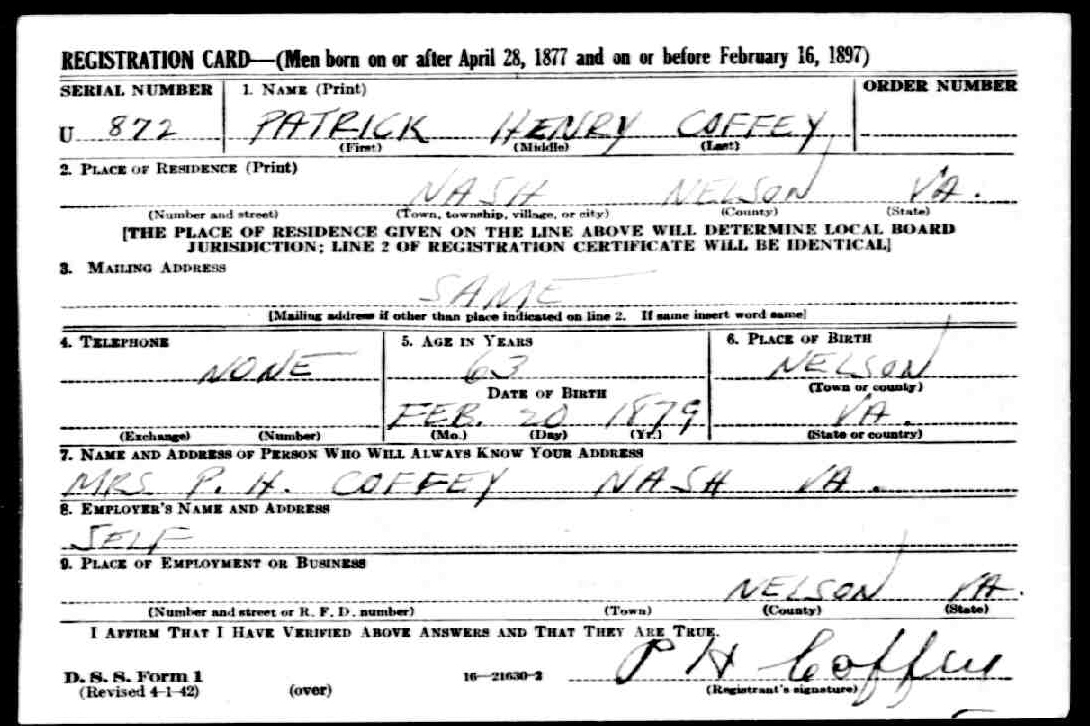 REGISTRATION CARD—(Men born on or after April 28, 1877 and on or before February 16, 1897)
SERIAL NUMBER 1. NAME (Print) ORDER NUMBER
U 872 PATRICK HENRY COFFEY
(First) (Middle) (Last)
2. PLACE OF RESIDENCE (Print)
NASH NELSON VA.
(Number and street) (Town, township, village, or city) (County) (State)
[THE PLACE OF RESIDENCE GIVEN ON THE LINE ABOVE WILL DETERMINE LOCAL BOARD
JURISDICTION; LINE 2 OF REGISTRATION CERTIFICATE WILL BE IDENTICAL]
3. MAILING ADDRESS
SAME
[Mailing address if other than place indicated on line 2. If same insert word same]
4. TELEPHONE 5. AGE IN YEARS 6. PLACE OF BIRTH
NONE 63 NELSON
DATE OF BIRTH (Town or county)
FEB. 20 1879 VA.
(Exchange) (Number) (Mo.) (Day) (Yr.) (State or country)
7. NAME AND ADDRESS OF PERSON WHO WILL ALWAYS KNOW YOUR ADDRESS
MRS. P. H. COFFEY NASH VA.
8. EMPLOYER'S NAME AND ADDRESS
SELF
9. PLACE OF EMPLOYMENT OR BUSINESS
NELSON VA.
(Number and street or R. F. D. number) (Town) (County) (State)
I AFFIRM THAT I HAVE VERIFIED ABOVE ANSWERS AND THAT THEY ARE TRUE.
P H Coffey
D. S. S. Form 1
(Revised 4-1-42) (over) 16—21630-2 (Registrant's signature)